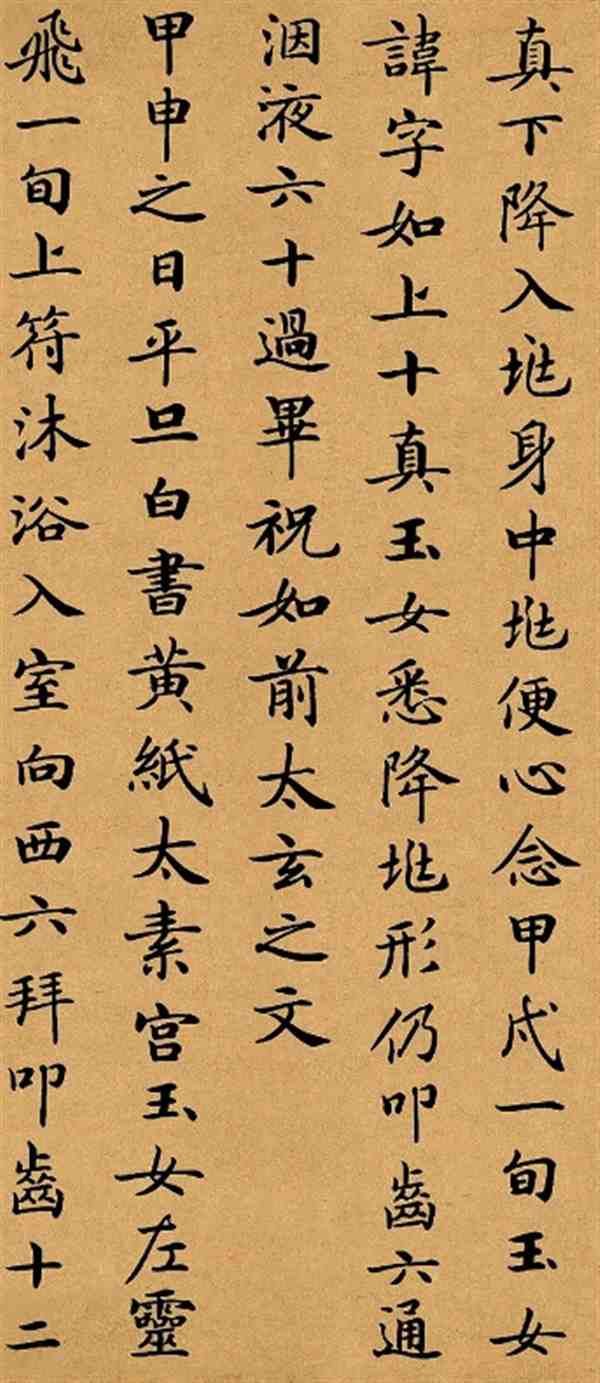 真下降入兆身中兆便心念甲戌一旬玉女
諱字如上十真玉女悉降兆形仍叩齒六通
咽液六十過畢祝如前太玄之文
甲申之日平旦白書黃紙太素宮玉女左靈
飛一旬上符沐浴入室向西六拜叩齒十二